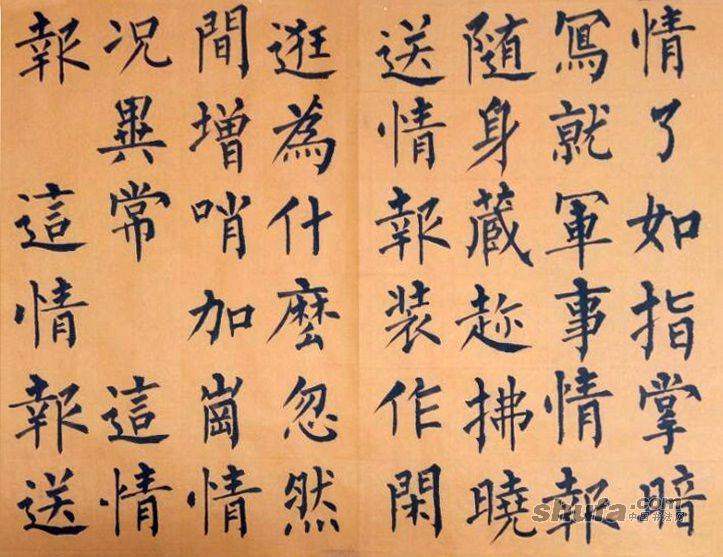 情了如指掌暗
冩就軍事情報
随身藏趂拂曉
送情報装作閑
逛為什麼忽然
間增哨加崗情
况異常 這情
報 這情報送
shufa.com
中国书法网